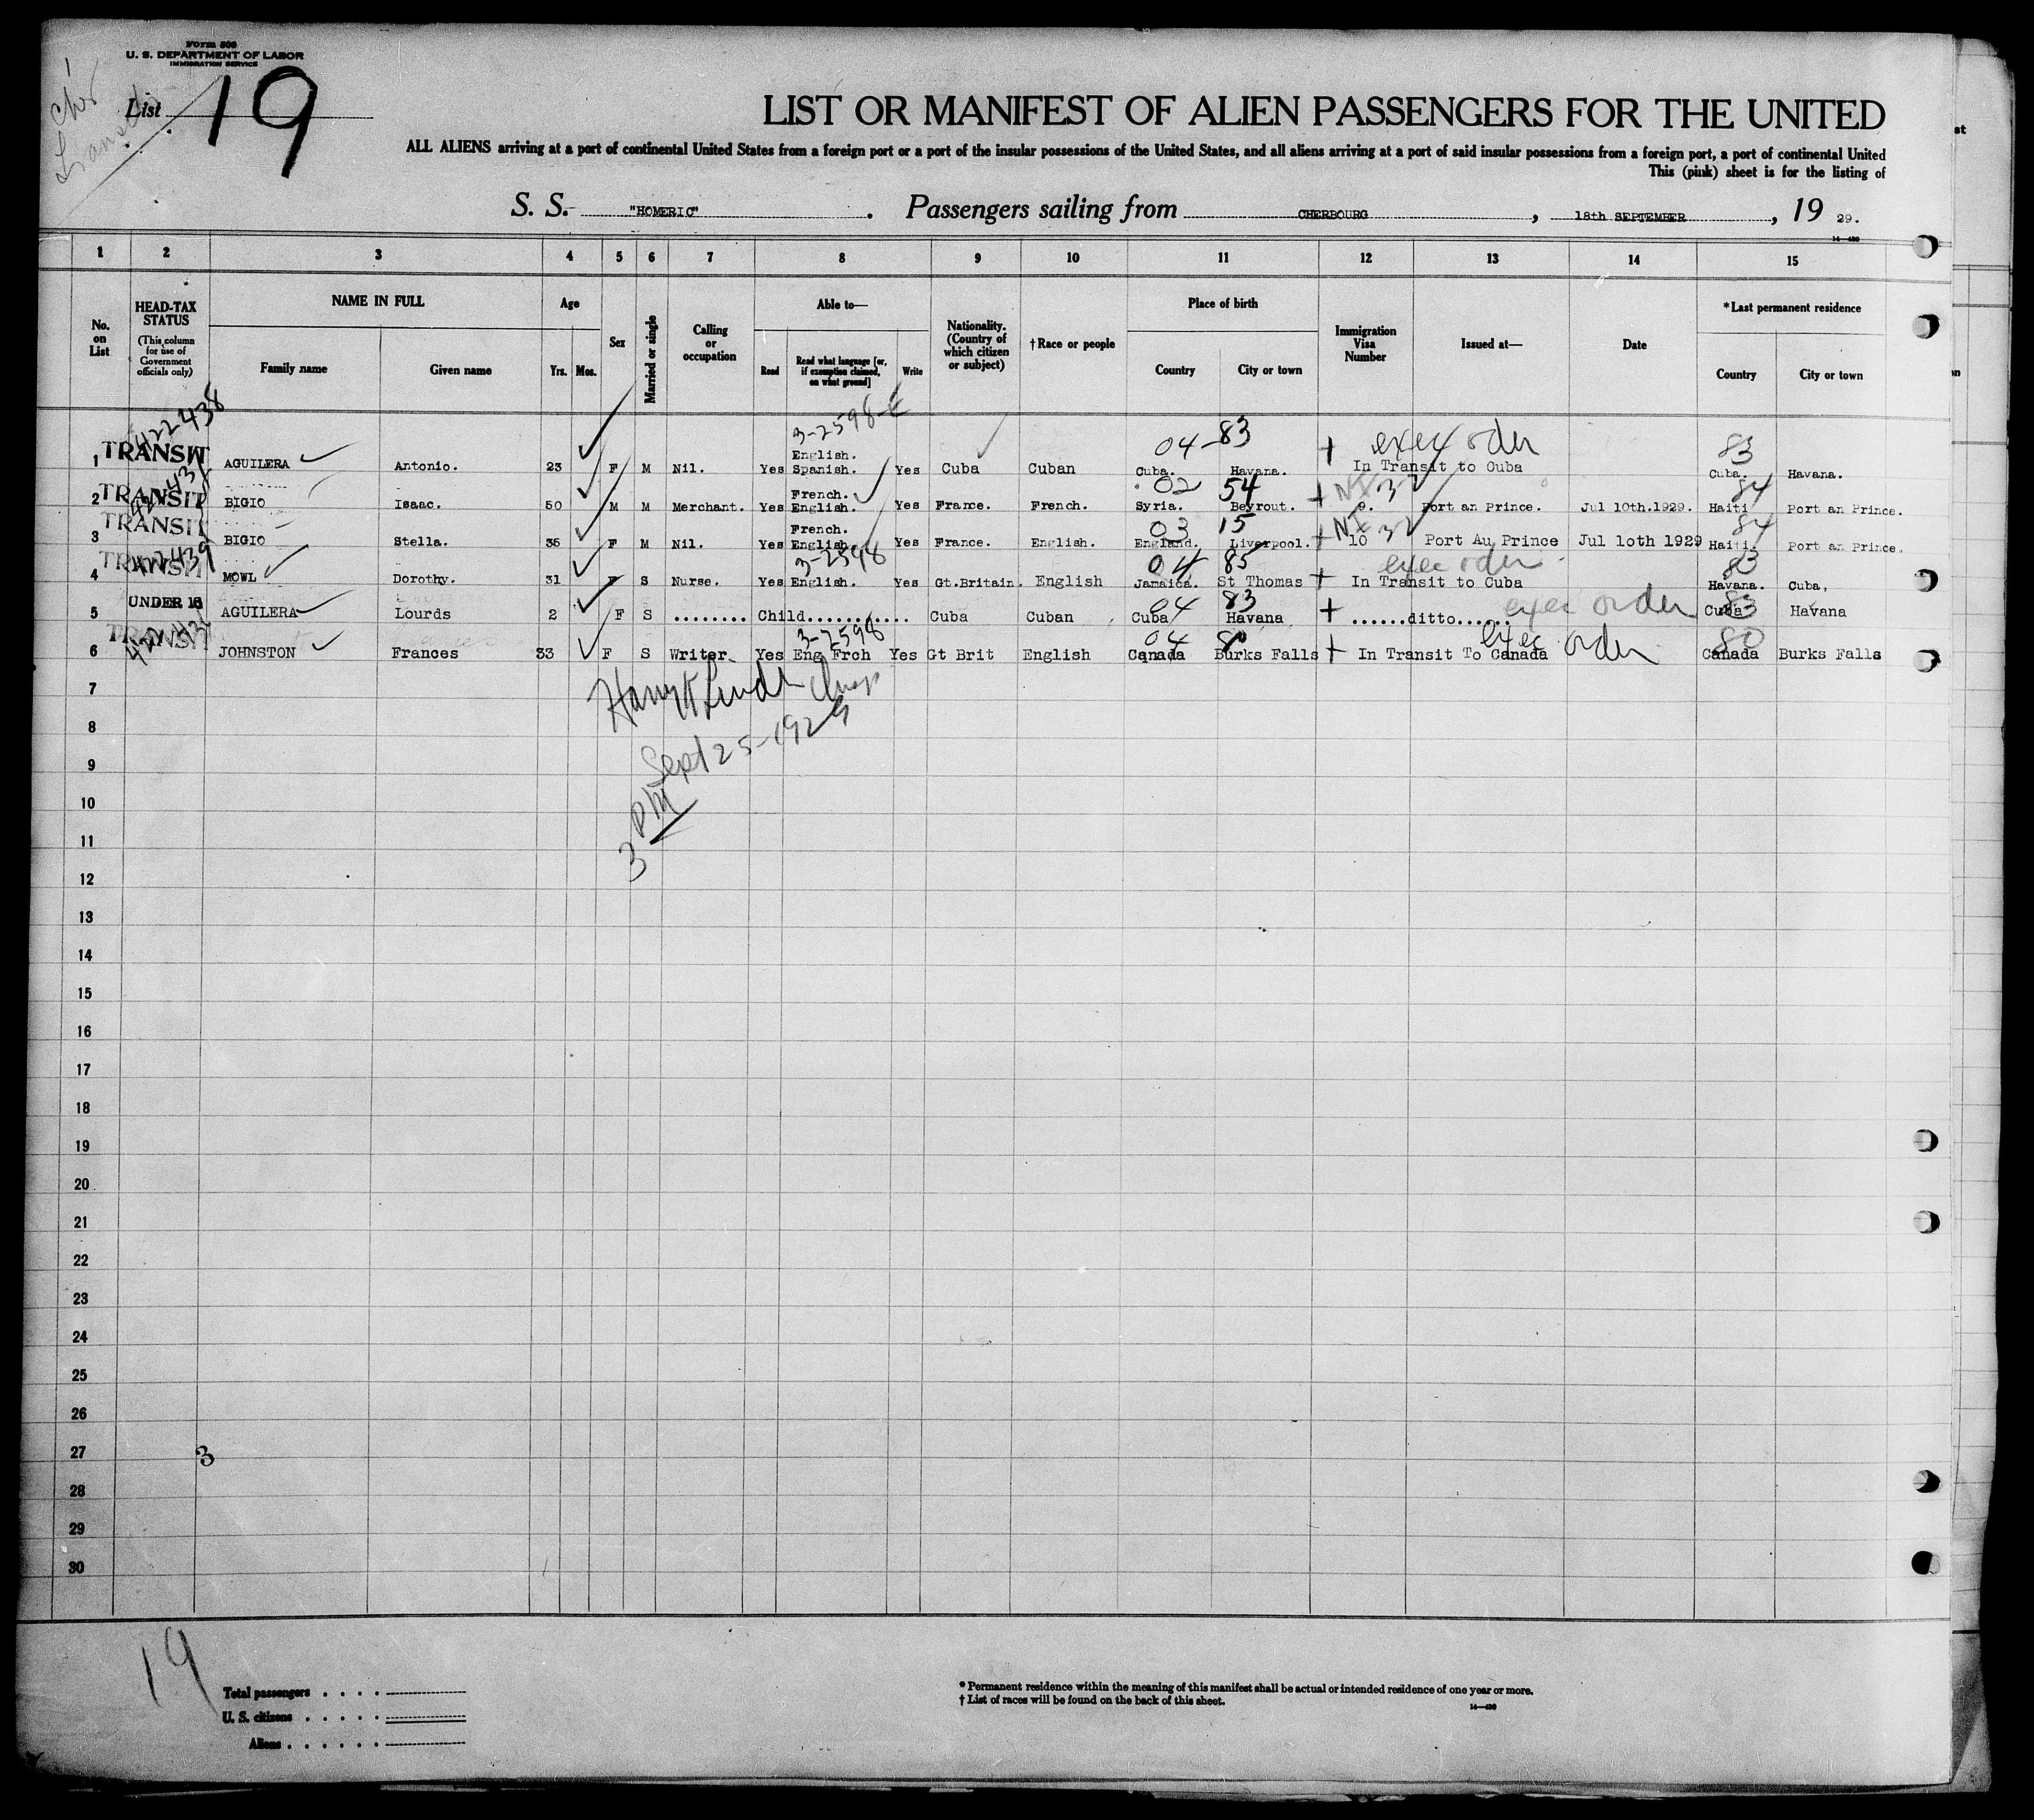 Form 500
U. S. DEPARTMENT OF LABOR
IMMIGRATION SERVICE
List 19
LIST OR MANIFEST OF ALIEN PASSENGERS FOR THE UNITED
ALL ALIENS arriving at a port of continental United States from a foreign port or a port of the insular possessions of the United States, and all aliens arriving at a port of said insular possessions from a foreign port, a port of continental United
This (pink) sheet is for the listing of
S. S. "HOMERIC". Passengers sailing from CHERBOURG, 18th SEPTEMBER, 19 29.
1 2 3 4 5 6 7 8 9 10 11 12 13 14 15
No. on List
HEAD-TAX STATUS (This column for use of Government officials only)
NAME IN FULL
Family name Given name
Age
Yrs. Mos.
Sex
Married or single
Calling or occupation
Able to—
Read Read what language [or, if exemption claimed, on what ground] Write
Nationality. (Country of which citizen or subject)
†Race or people
Place of birth
Country City or town
Immigration Visa Number
Issued at—
Date
*Last permanent residence
Country City or town
422438 3-2598 04-83 exec order 83
1 TRANSIT AGUILERA Antonio. 23 F M Nil. Yes English. Spanish. Yes Cuba Cuban Cuba. Havana. In Transit to Cuba Cuba. Havana.
02 54 NI 32 84
2 TRANSIT BIGIO Isaac. 50 M M Merchant. Yes French. English. Yes France. French. Syria. Beyrout. 9. Port an Prince. Jul 10th.1929. Haiti Port an Prince.
03 15 NI 32 84
3 TRANSIT BIGIO Stella. 35 F M Nil. Yes French. English. Yes France. English. England. Liverpool. 10 Port Au Prince Jul 10th 1929 Haiti. Port an Prince.
422439 3-2598 04 85 exec order 83
4 TRANSIT MOWL Dorothy. 31 F S Nurse. Yes English. Yes Gt.Britain. English Jamaica. St Thomas In Transit to Cuba Havana. Cuba,
04 83 exec order 83
5 UNDER 16 AGUILERA Lourds 2 F S ........ Child........... Cuba Cuban Cuba Havana ......ditto...... Cuba Havana
3-2598 04 80 exec order 80
6 TRANSIT JOHNSTON Frances 33 F S Writer. Yes Eng Frch Yes Gt Brit English Canada Burks Falls In Transit To Canada Canada Burks Falls
7
8
Sept 25-1929
9
10
3 PM
11
12
13
14
15
16
17
18
19
20
21
22
23
24
25
26
27 3
28
29
30
19
Total passengers
U. S. citizens
Aliens
* Permanent residence within the meaning of this manifest shall be actual or intended residence of one year or more.
† List of races will be found on the back of this sheet.
14—430